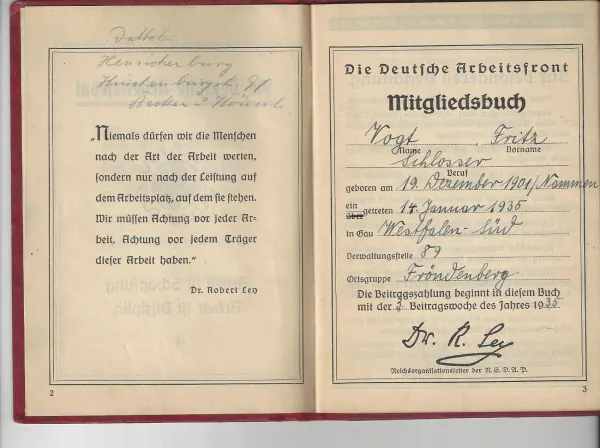 Datteln
Henricherburg
Hindenburgstr. 91
Becker
„Niemals dürfen wir die Menschen
nach der Art der Arbeit werten,
sondern nur nach der Leistung auf
dem Arbeitsplatz, auf dem sie stehen.
Wir müssen Achtung vor jeder Ar-
beit, Achtung vor jedem Träger
dieser Arbeit haben.“
Dr. Robert Ley
2
Die Deutsche Arbeitsfront
Mitgliedsbuch
Vogt, Fritz
Name Vorname
Schlosser
Beruf
geboren am 19. Dezember 1901/Nammen
ein
über getreten 14. Januar 1935
in Gau Westfalen-Süd
Verwaltungsstelle 89
Ortsgruppe Fröndenberg
Die Beitragszahlung beginnt in diesem Buch
mit der 3 Beitragswoche des Jahres 1935
Dr. R. Ley
Reichsorganisationsleiter der N.S.D.A.P.
3